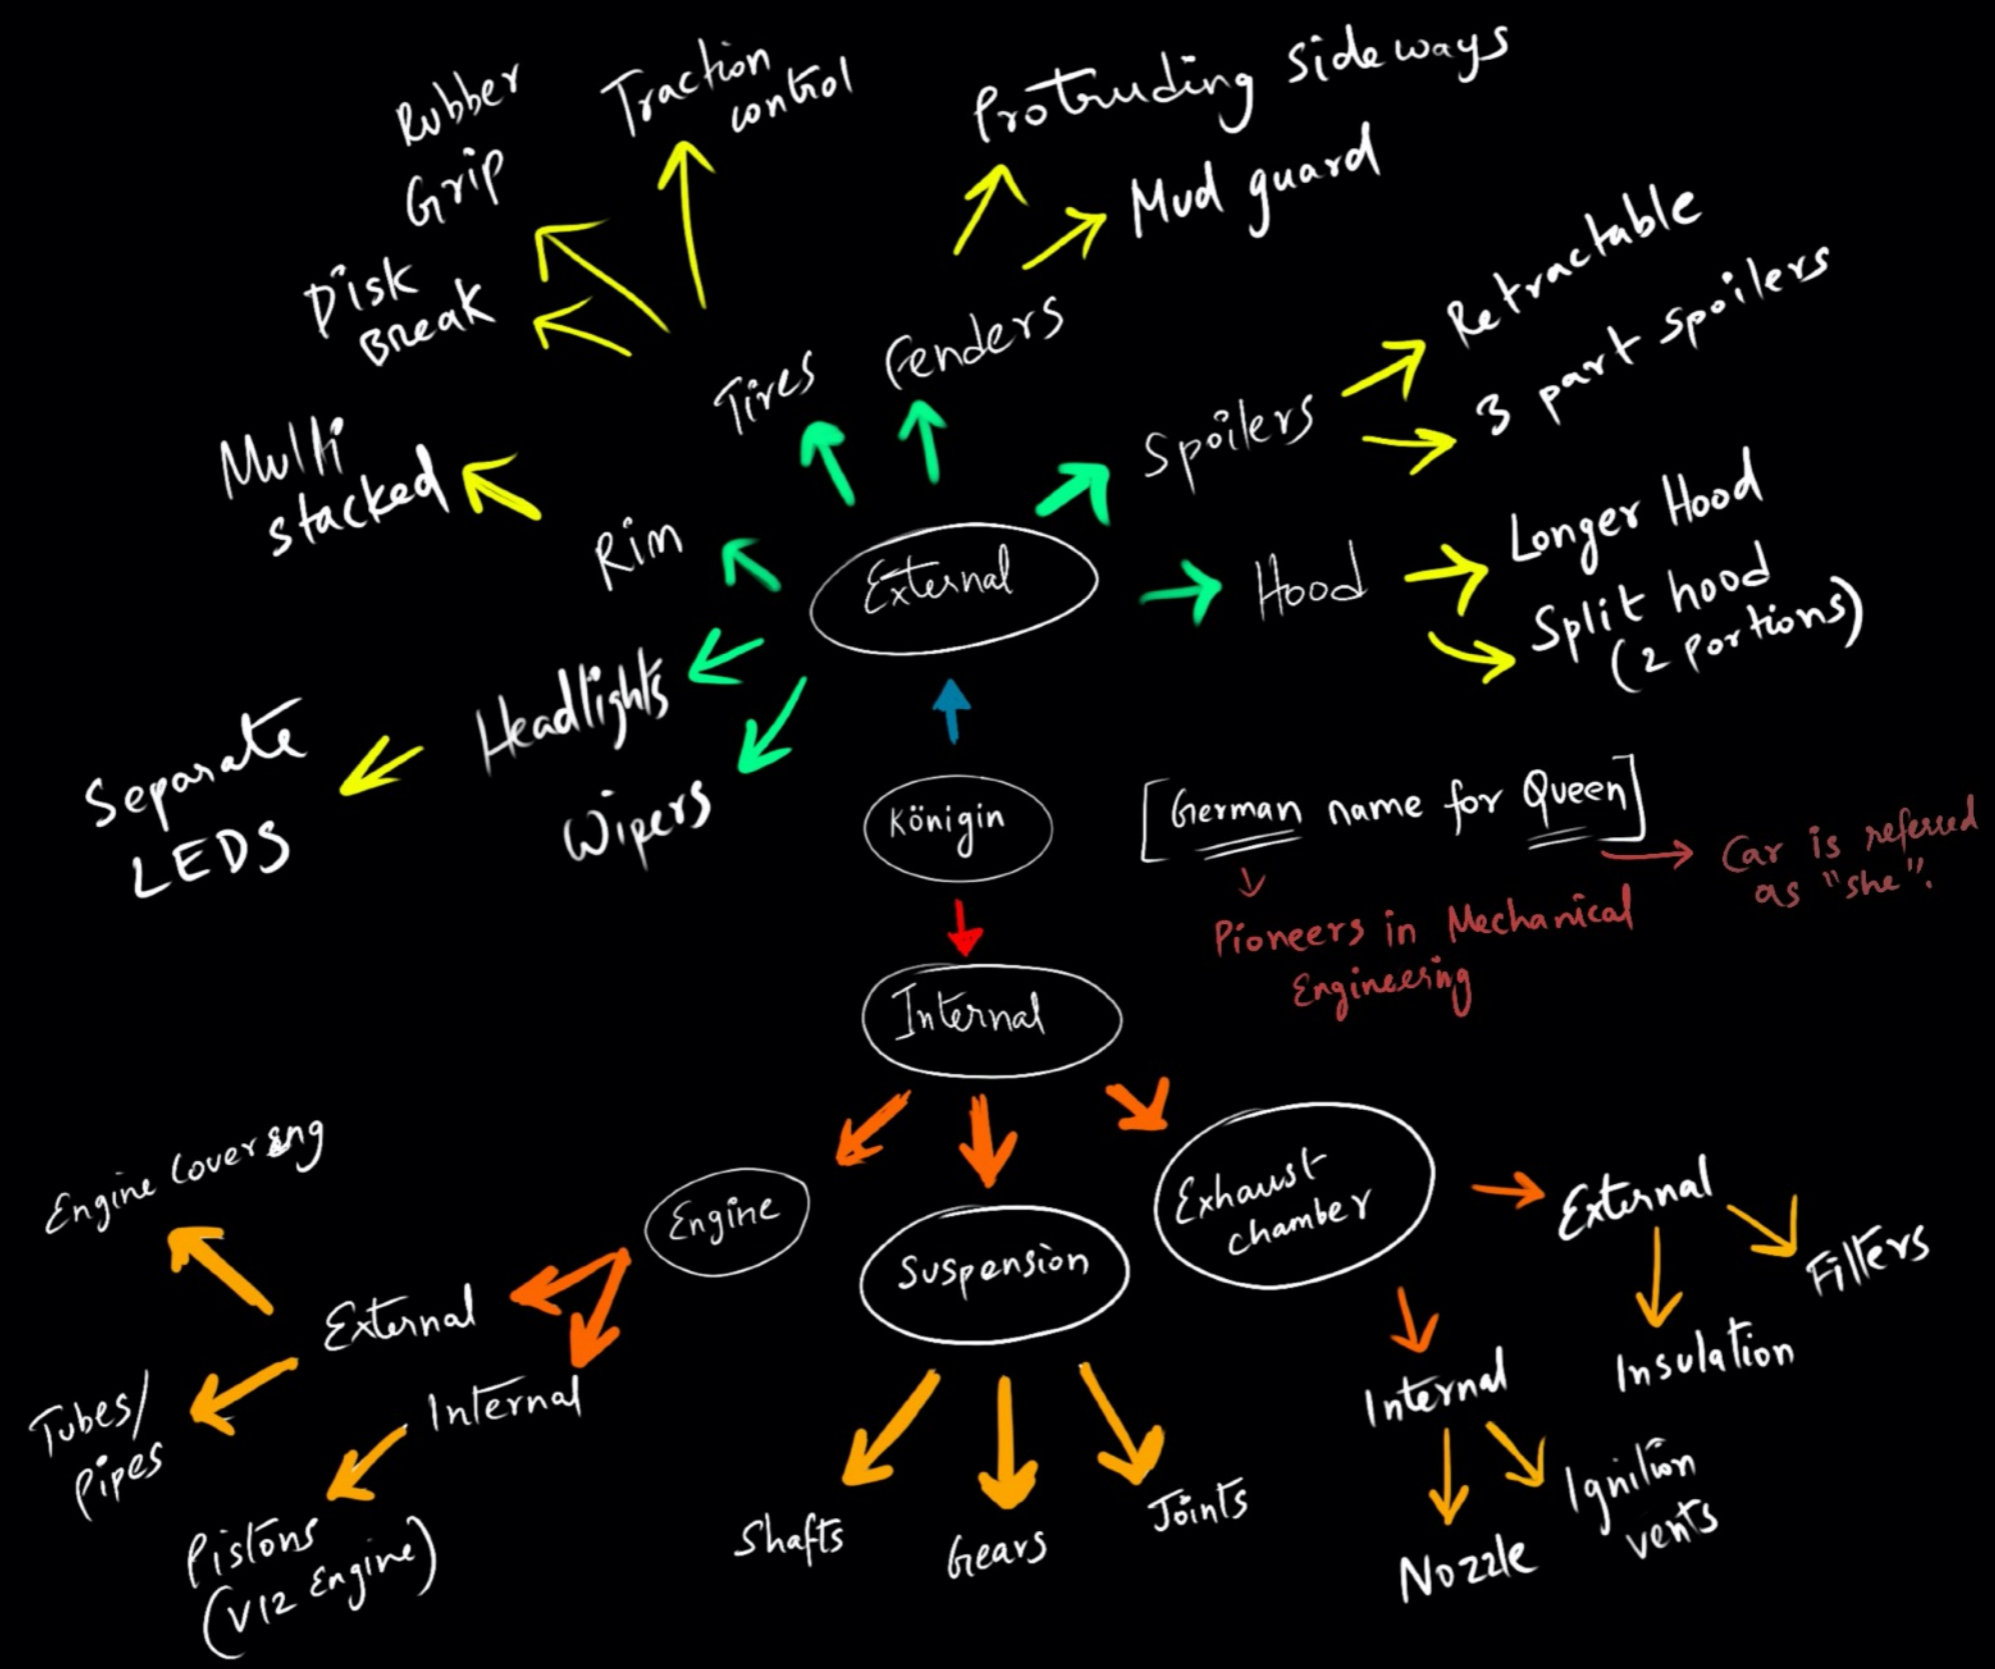 Rubber
Grip
Traction
control
Protruding sideways
Mud guard
Disk
Break
Tires
Fenders
Retractable
3 part spoilers
Spoilers
Multi
stacked
Rim
External
Hood
Longer Hood
Split hood
(2 Portions)
Headlights
Separate
LEDS
Wipers
Königin
[German name for Queen]
Car is referred
as "she".
Pioneers in Mechanical
Engineering
Internal
Engine Covering
Engine
Suspension
Exhaust
chamber
External
Filters
Insulation
External
Internal
Tubes/
Pipes
Pistons
(V12 Engine)
Shafts
Gears
Joints
Internal
Nozzle
Ignition
vents